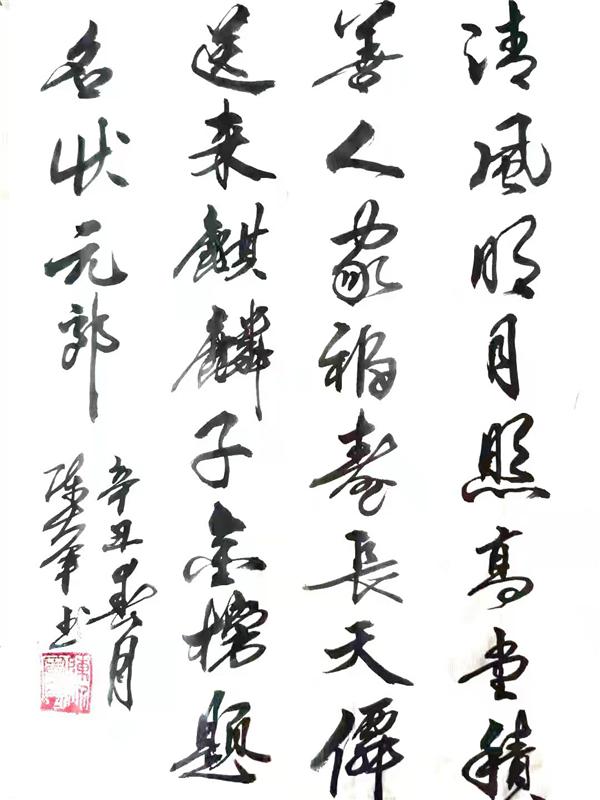 清風明月照高堂積
善人家福壽長天僊
送来麒麟子金榜題
名状元郎
辛丑春月
陳
書